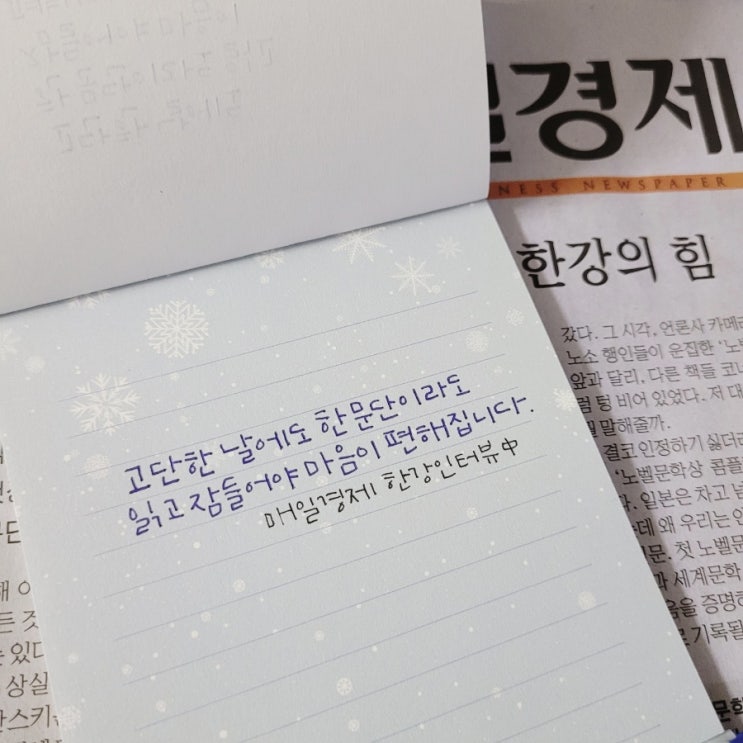 경제
NESS NEWSPAPER
한강의 힘
갔다. 그 시각, 언론사 카메라
노소 행인들이 운집한 '노벨
앞과 달리, 다른 책들 코너
텅 비어 있었다. 저 대
말해줄까.
결코 인정하기 싫더라
'노벨문학상 콤플
일본은 차고 넘
데 왜 우리는
첫 노벨문
세계문학
증명하
기록될
고단한 날에도 한 문단이라도
읽고 잠들어야 마음이 편해집니다.
매일경제 한강인터뷰 中
해
든 것
있다
상실
스키